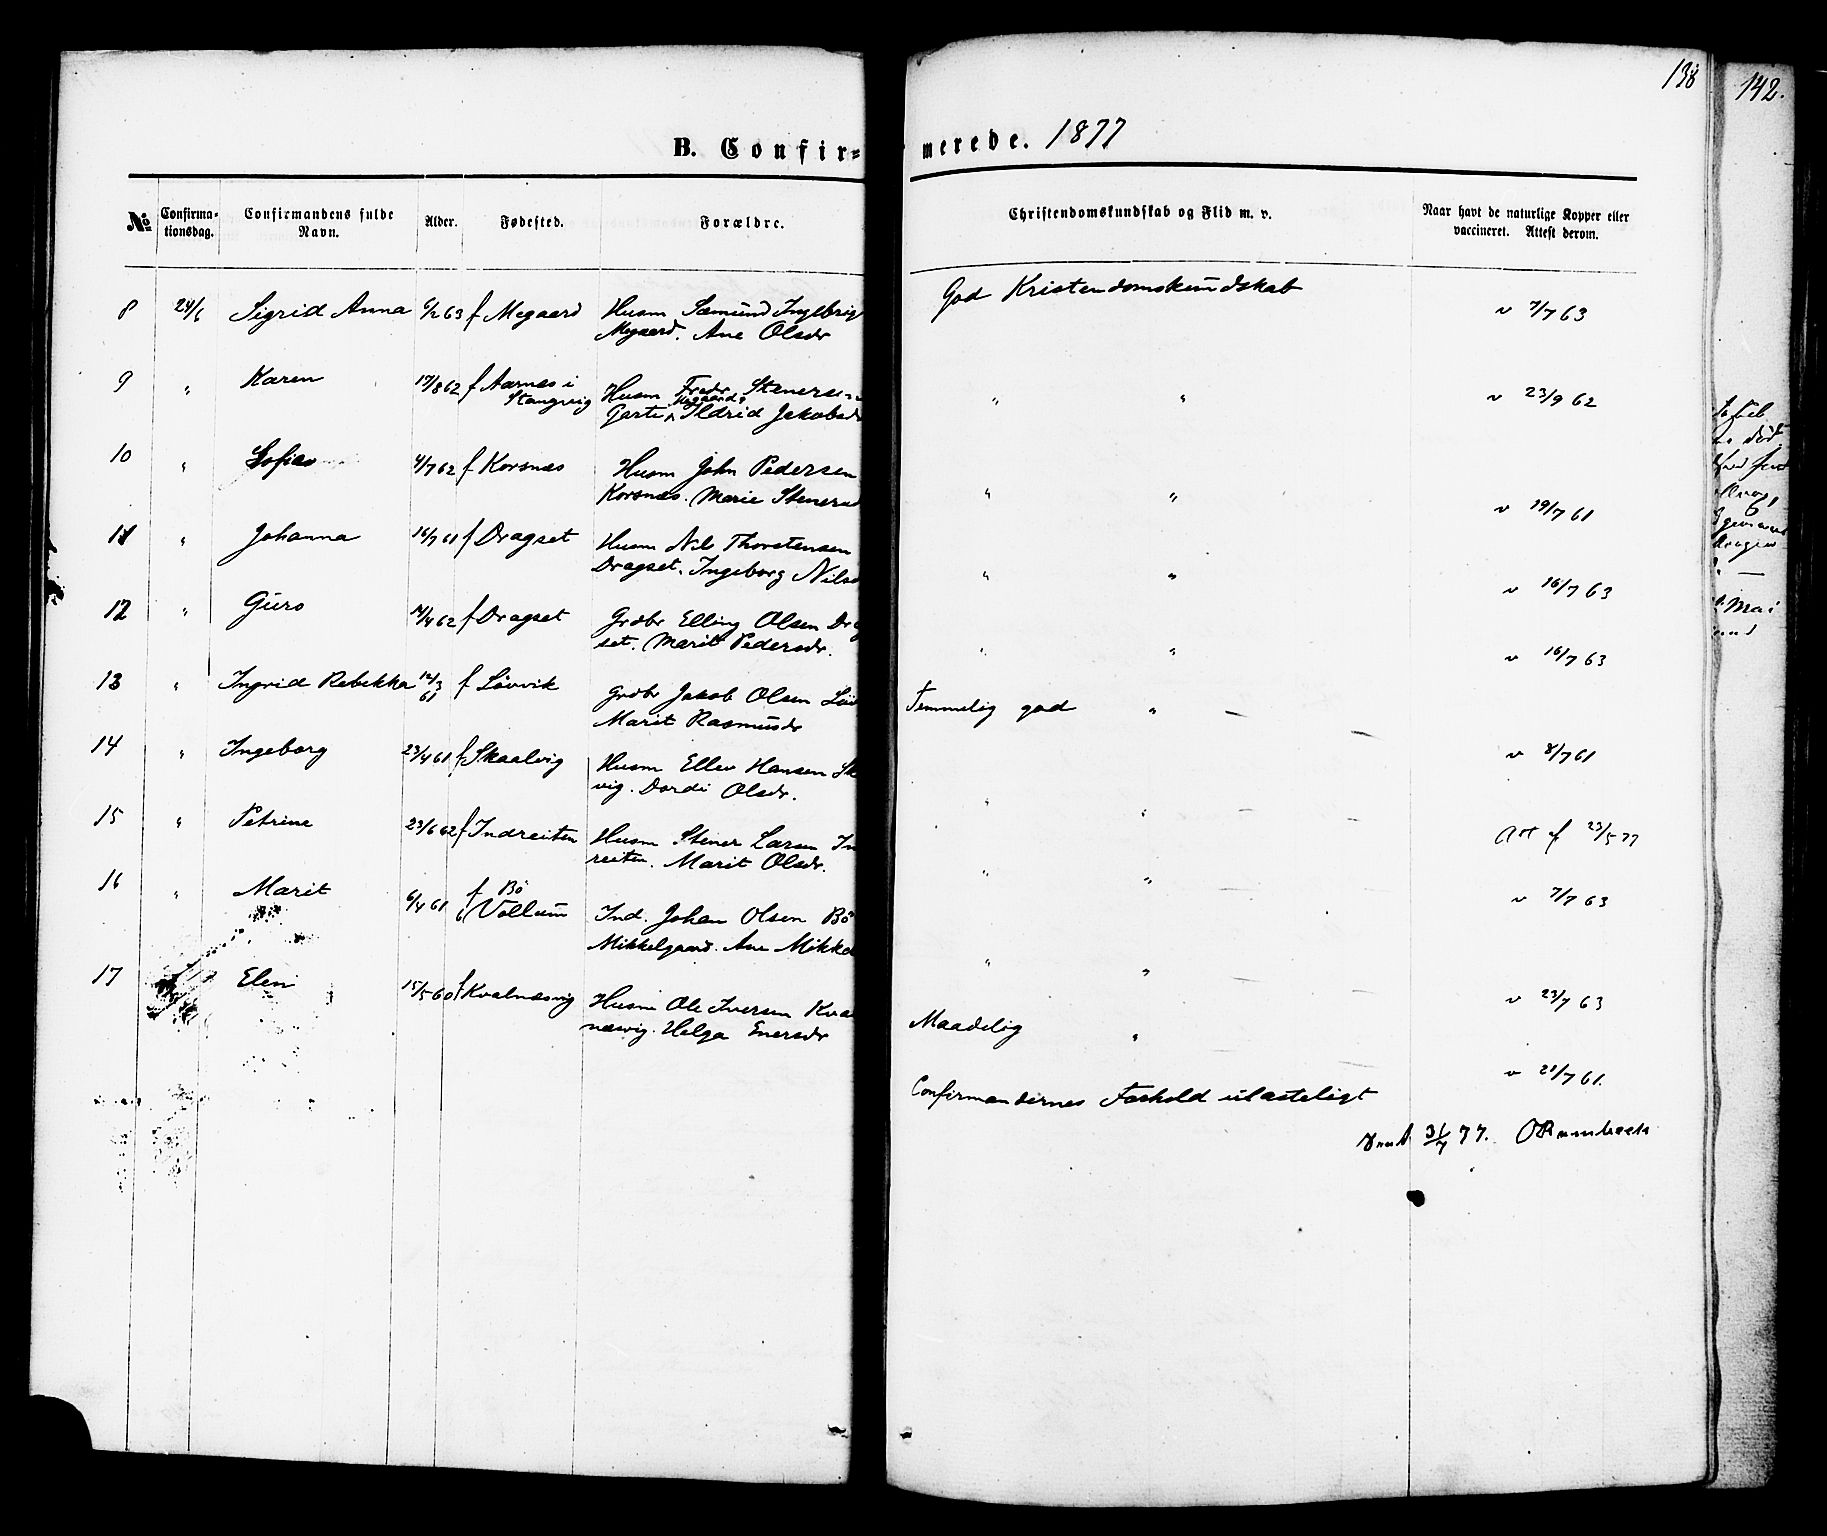 138
142.
B. Confir-
merede. 1877
No
Confirma-
tionsdag.
Confirmandens fulde
Navn.
Alder.
Fødested.
Forældre.
Christendomskundskab og Flid m. v.
Naar havt de naturlige Kopper eller
vaccineret. Attest derom.
8 24/6 Sigrid Anna 6/2 63 f Megaard Husm Sæmund Ingebrig
Megaard. Ane Olsdr
God Kristendomskundskab
v 7/7 63
9 " Karen 17/8 62 f Aarnæs i Husm Fredr Steners
Stangvig Ildrid Jakobsdr
" " v 23/9 62
10 " Sofie 4/7 62 f Korsnæs Husm John Pedersen
Korsnæs. Marie Stenersd
" " v 19/7 61
11 " Johanna 14/7 61 f Dragset Husm Nils Thorstensen
Dragset. Ingeborg Nilsd
" " v 16/7 63
12 " Guro 14/4 62 f Dragset Grdbr Elling Olsen Drag
set. Marit Pedersdr.
" " v 16/7 63
13 " Ingrid Rebekka 12/3 f Lövvik Grdbr Jakob Olsen Löv
61 Marit Rasmusdr
Temmelig god " –
14 " Ingeborg 23/4 61 f Skaalvig Husm Ellev Hansen Sk
vig. Dordi Olsdr.
" " – v 8/7 61
15 " Petrine 23/6 62 f Indreiten Husm Stener Larsen In
reiten. Marit Olsdr.
" " Att f 23/5 77
16 " Marit 6/4 61 f Bö
Vollum Ind. Johan Olsen Bö
Mikkelgaard. Ane Mikkel
" " v 7/7 63
17 Elen 15/5 60 f Kvalnæsvig Husm Ole Iversen Kval
næsvig. Helga Enersdr
Maadelig " v 23/7 63
v 21/7 61.
Confirmandernes Forhold ulasteligt
31/7 77.
Mai